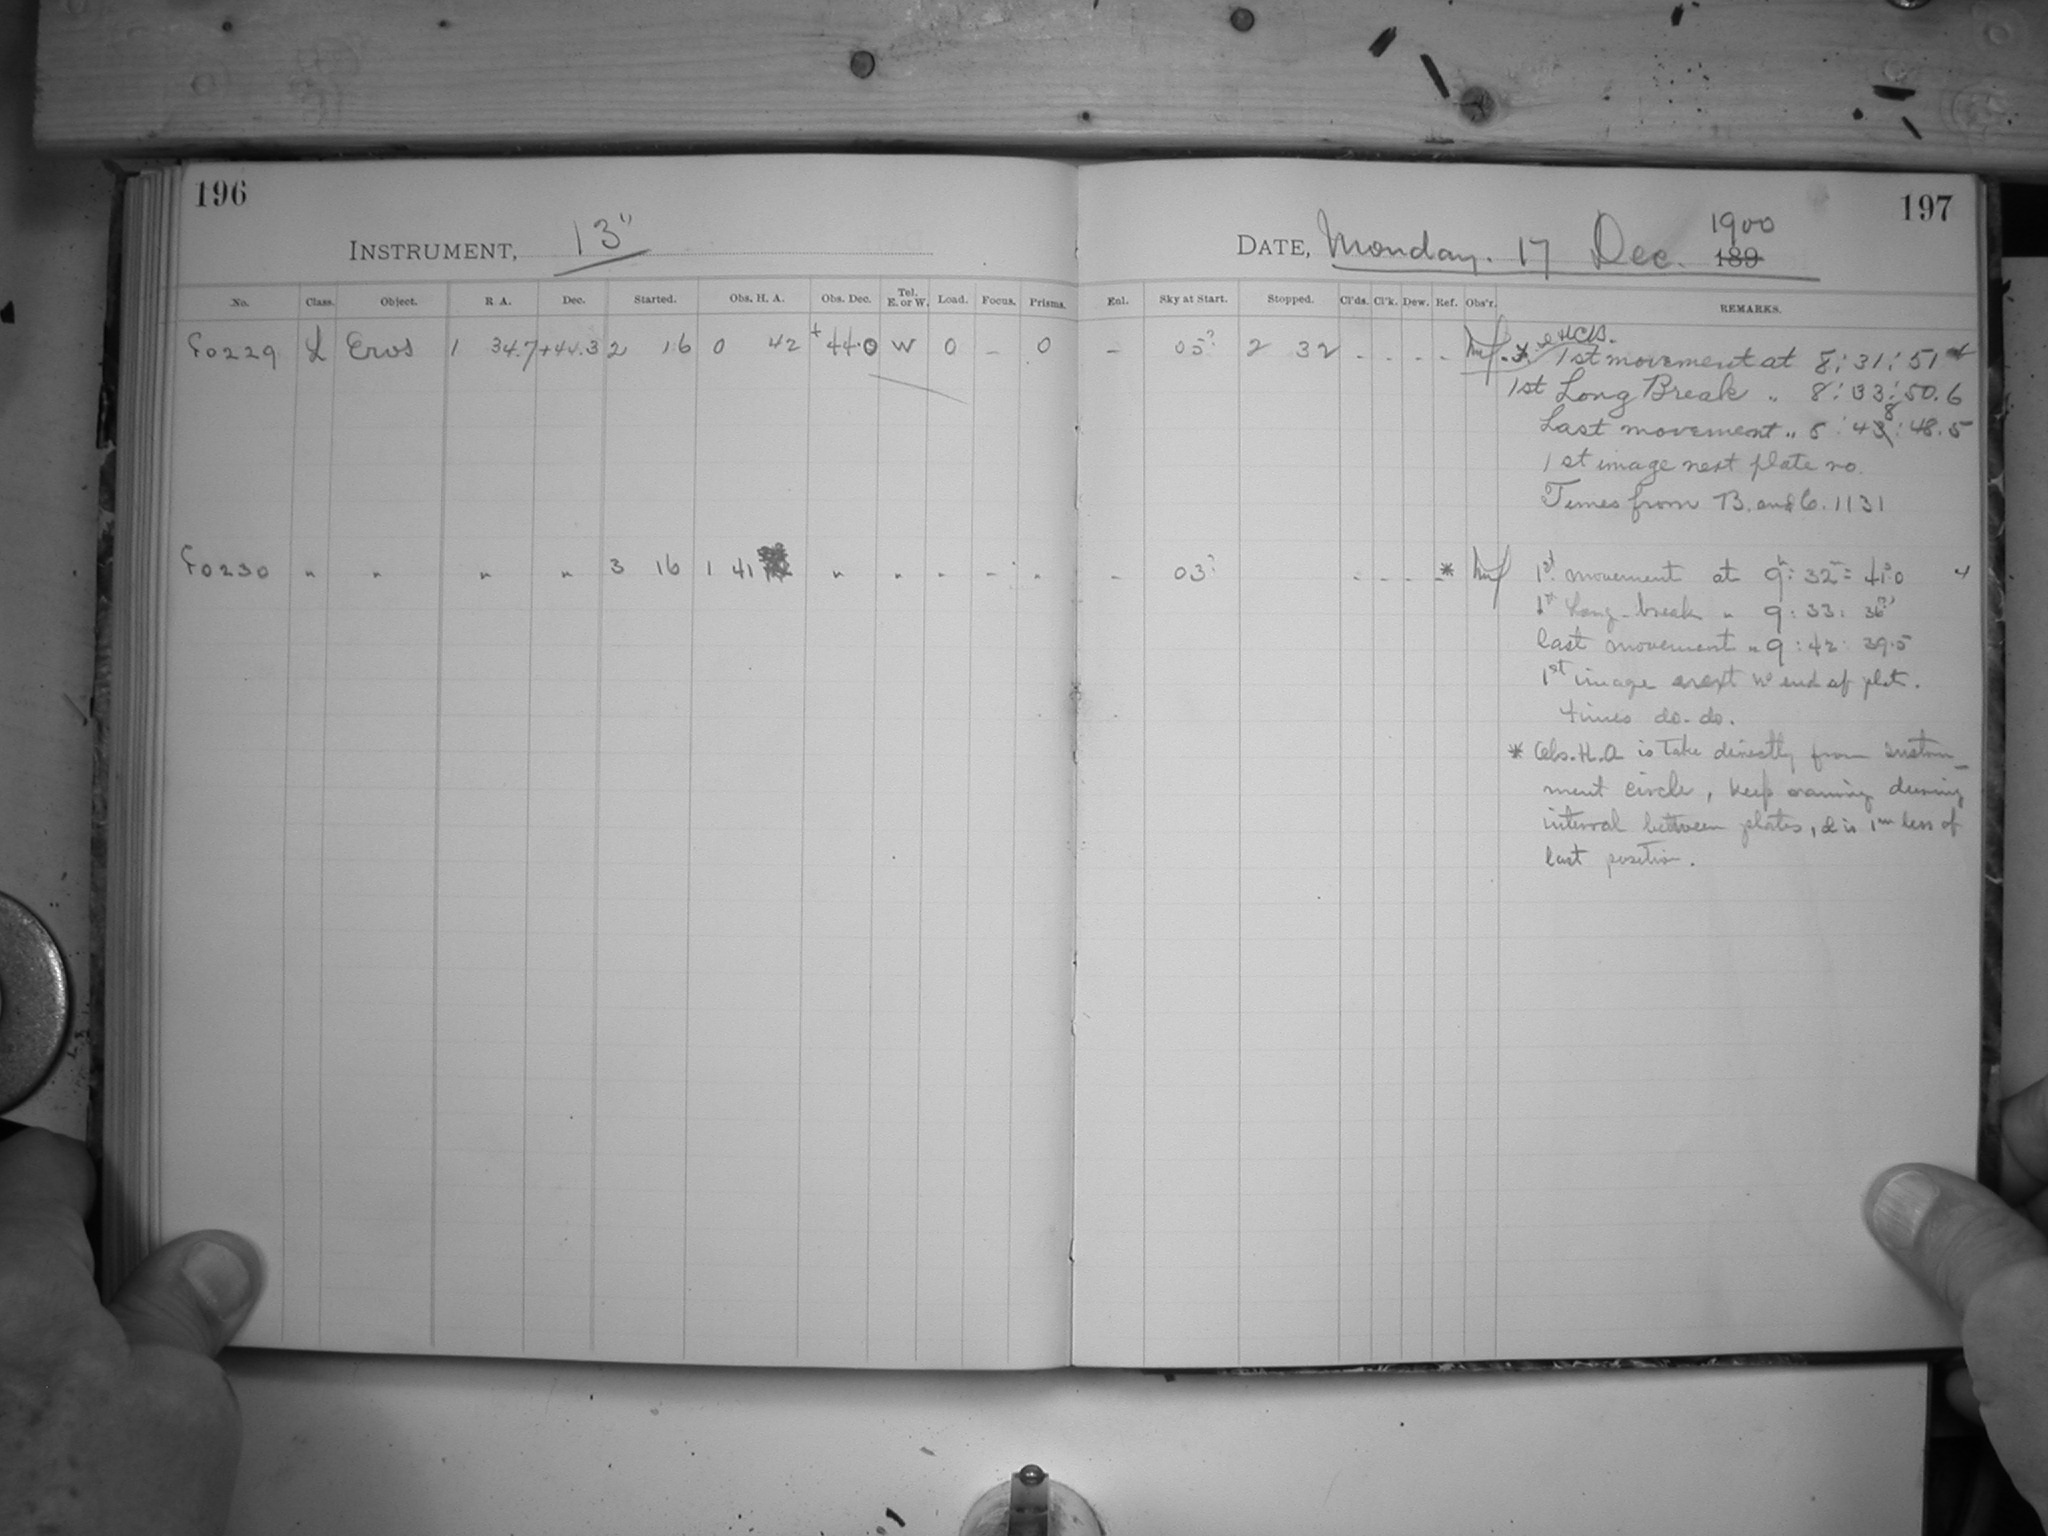 196
INSTRUMENT, 13"
No. Class. Object. R A. Dec. Started. Obs. H. A. Obs. Dec. Tel. E. or W. Load. Focus. Prisms.
50229 L Eros 1 34.7 +44.3 2 16 0 42 +44.0 W 0 – 0
50230 " " " " 3 16 1 41 " " " – "
197
DATE, Monday. 17 Dec. 1900 189
Enl. Sky at Start. Stopped. Cl'ds. Cl'k. Dew. Ref. Obs'r. REMARKS.
– 05? 2 32 - - - - & HCB.
1st movement at 8: 31: 51
1st Long Break " 8: 33: 50.6
Last movement " 8: 48: 48.5
1st image next plate no.
Times from B. and C. 1131
– 03? - - - * 1st movement at 9h: 32m: 41s.0
1st Long-break " 9: 33: 36
last movement " 9: 42: 39.5
1st image next no end of plate.
times do. do.
* Obs. H.A is take directly from instru-
ment circle, keep running during
interval between plates, & is 1m less of
last position.